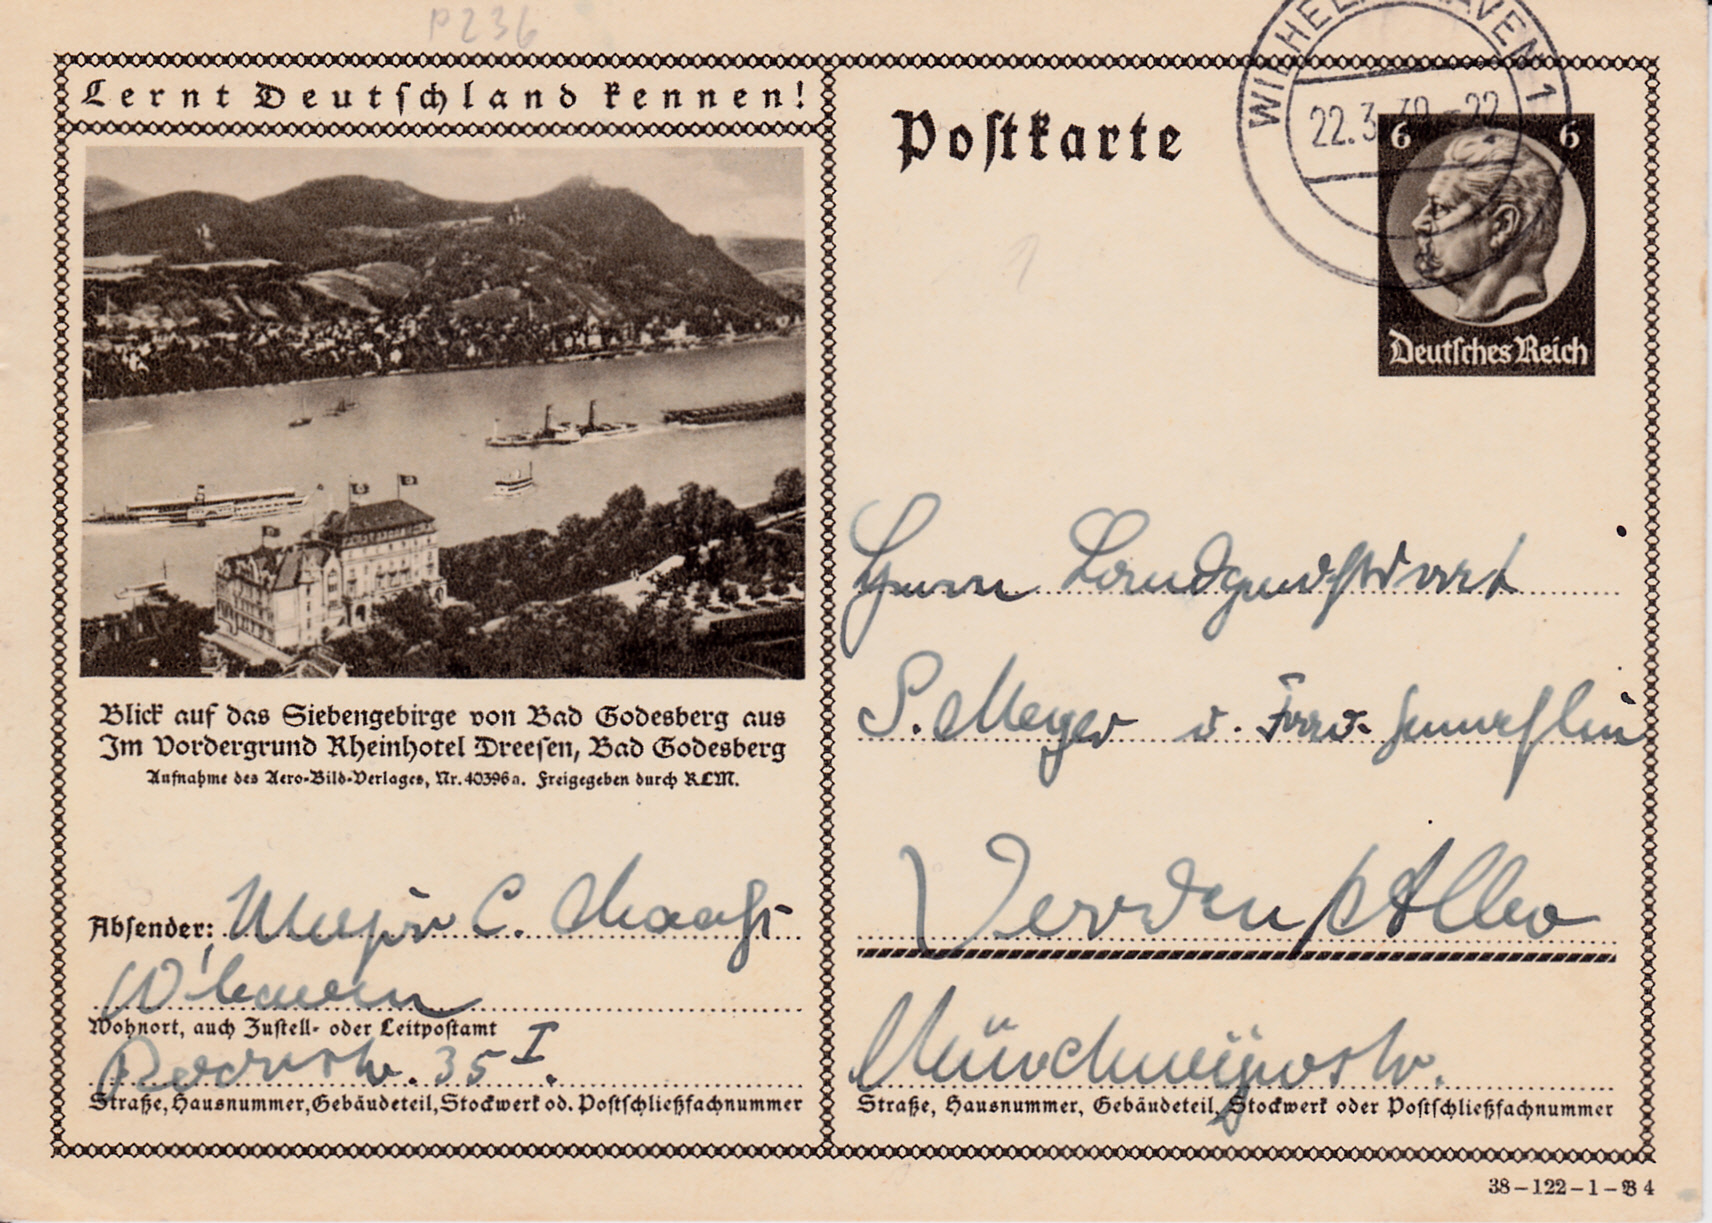 P236
Lernt Deutschland kennen!
Blick auf das Siebengebirge von Bad Godesberg aus
Im Vordergrund Rheinhotel Dreesen, Bad Godesberg
Aufnahme des Aero-Bild-Verlages, Nr. 40396 a. Freigegeben durch RLM.
Absender: Major C.
W'haven
Wohnort, auch Zustell- oder Leitpostamt
35 I.
Straße, Hausnummer, Gebäudeteil, Stockwerk od. Postschließfachnummer
Postkarte
WILHELMSHAVEN 1
22.3.39-22
6 6
Deutsches Reich
Herrn
S. Meyer u. Frau
Verden / Aller
Straße, Hausnummer, Gebäudeteil, Stockwerk oder Postschließfachnummer
38-122-1-B 4